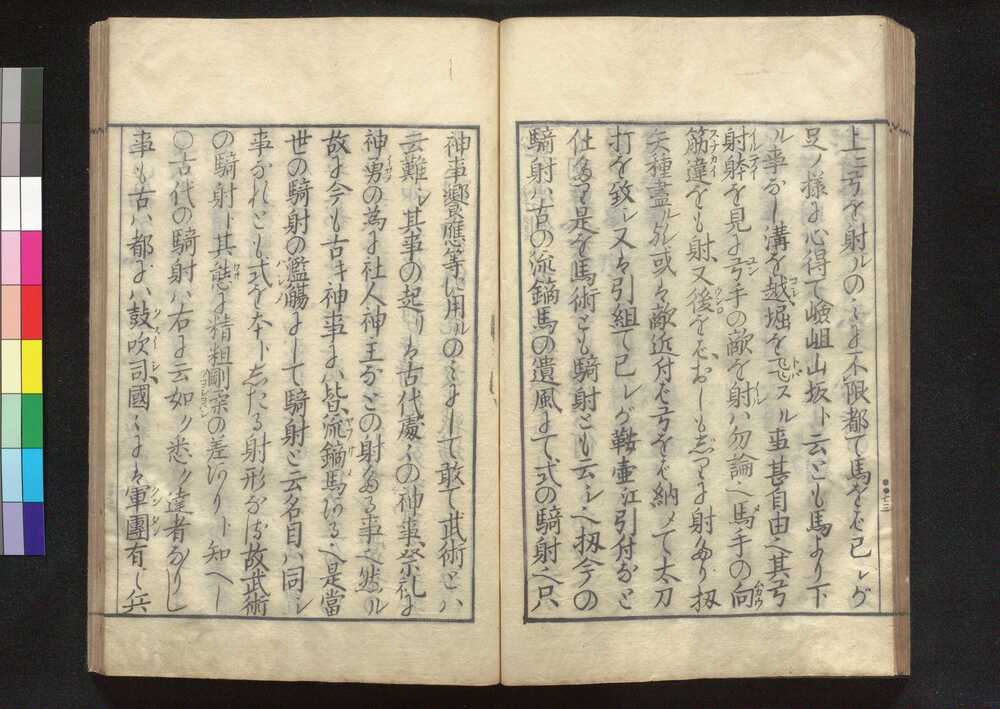 上ニ弓を射ルのミに不限都て馬をバ己レガ
足ノ様に心得て嶮岨山坂ト云とも馬より下
ル事なし溝を越堀をトビスル事甚自由也其弓
射幹を見よ弓手の敵を射ハ勿論也馬手の向
筋違をも射又後をバおしもじりに射あり扨
矢種盡ルカ或ハ敵近付ば弓をバ納メて太刀
打を致シ又ハ引組て己レガ鞍壷江引付など
仕ル是を馬術とも騎射とも云シ也扨今の
騎射ハ古の流鏑馬の遺風にて式の騎射也只
神事饗應等に用ルのミにして敢て武術とハ
云難シ其事の起りハ古代處々の神事祭礼に
神勇の為に社人神主などの射ある事也然ル
故に今も古キ神事にハ皆流鏑馬ある也是當
世の騎射の濫觴にして騎射と云名目ハ同シ
事なれとも式を本トしたる射形なる故武術
の騎射ト其態に精粗剛柔の差ありト知へし
○古代の騎射ハ右に云如ク悉ク達者なりし
事も古ハ都にハ鼓吹司國々にハ軍團有し兵
七三